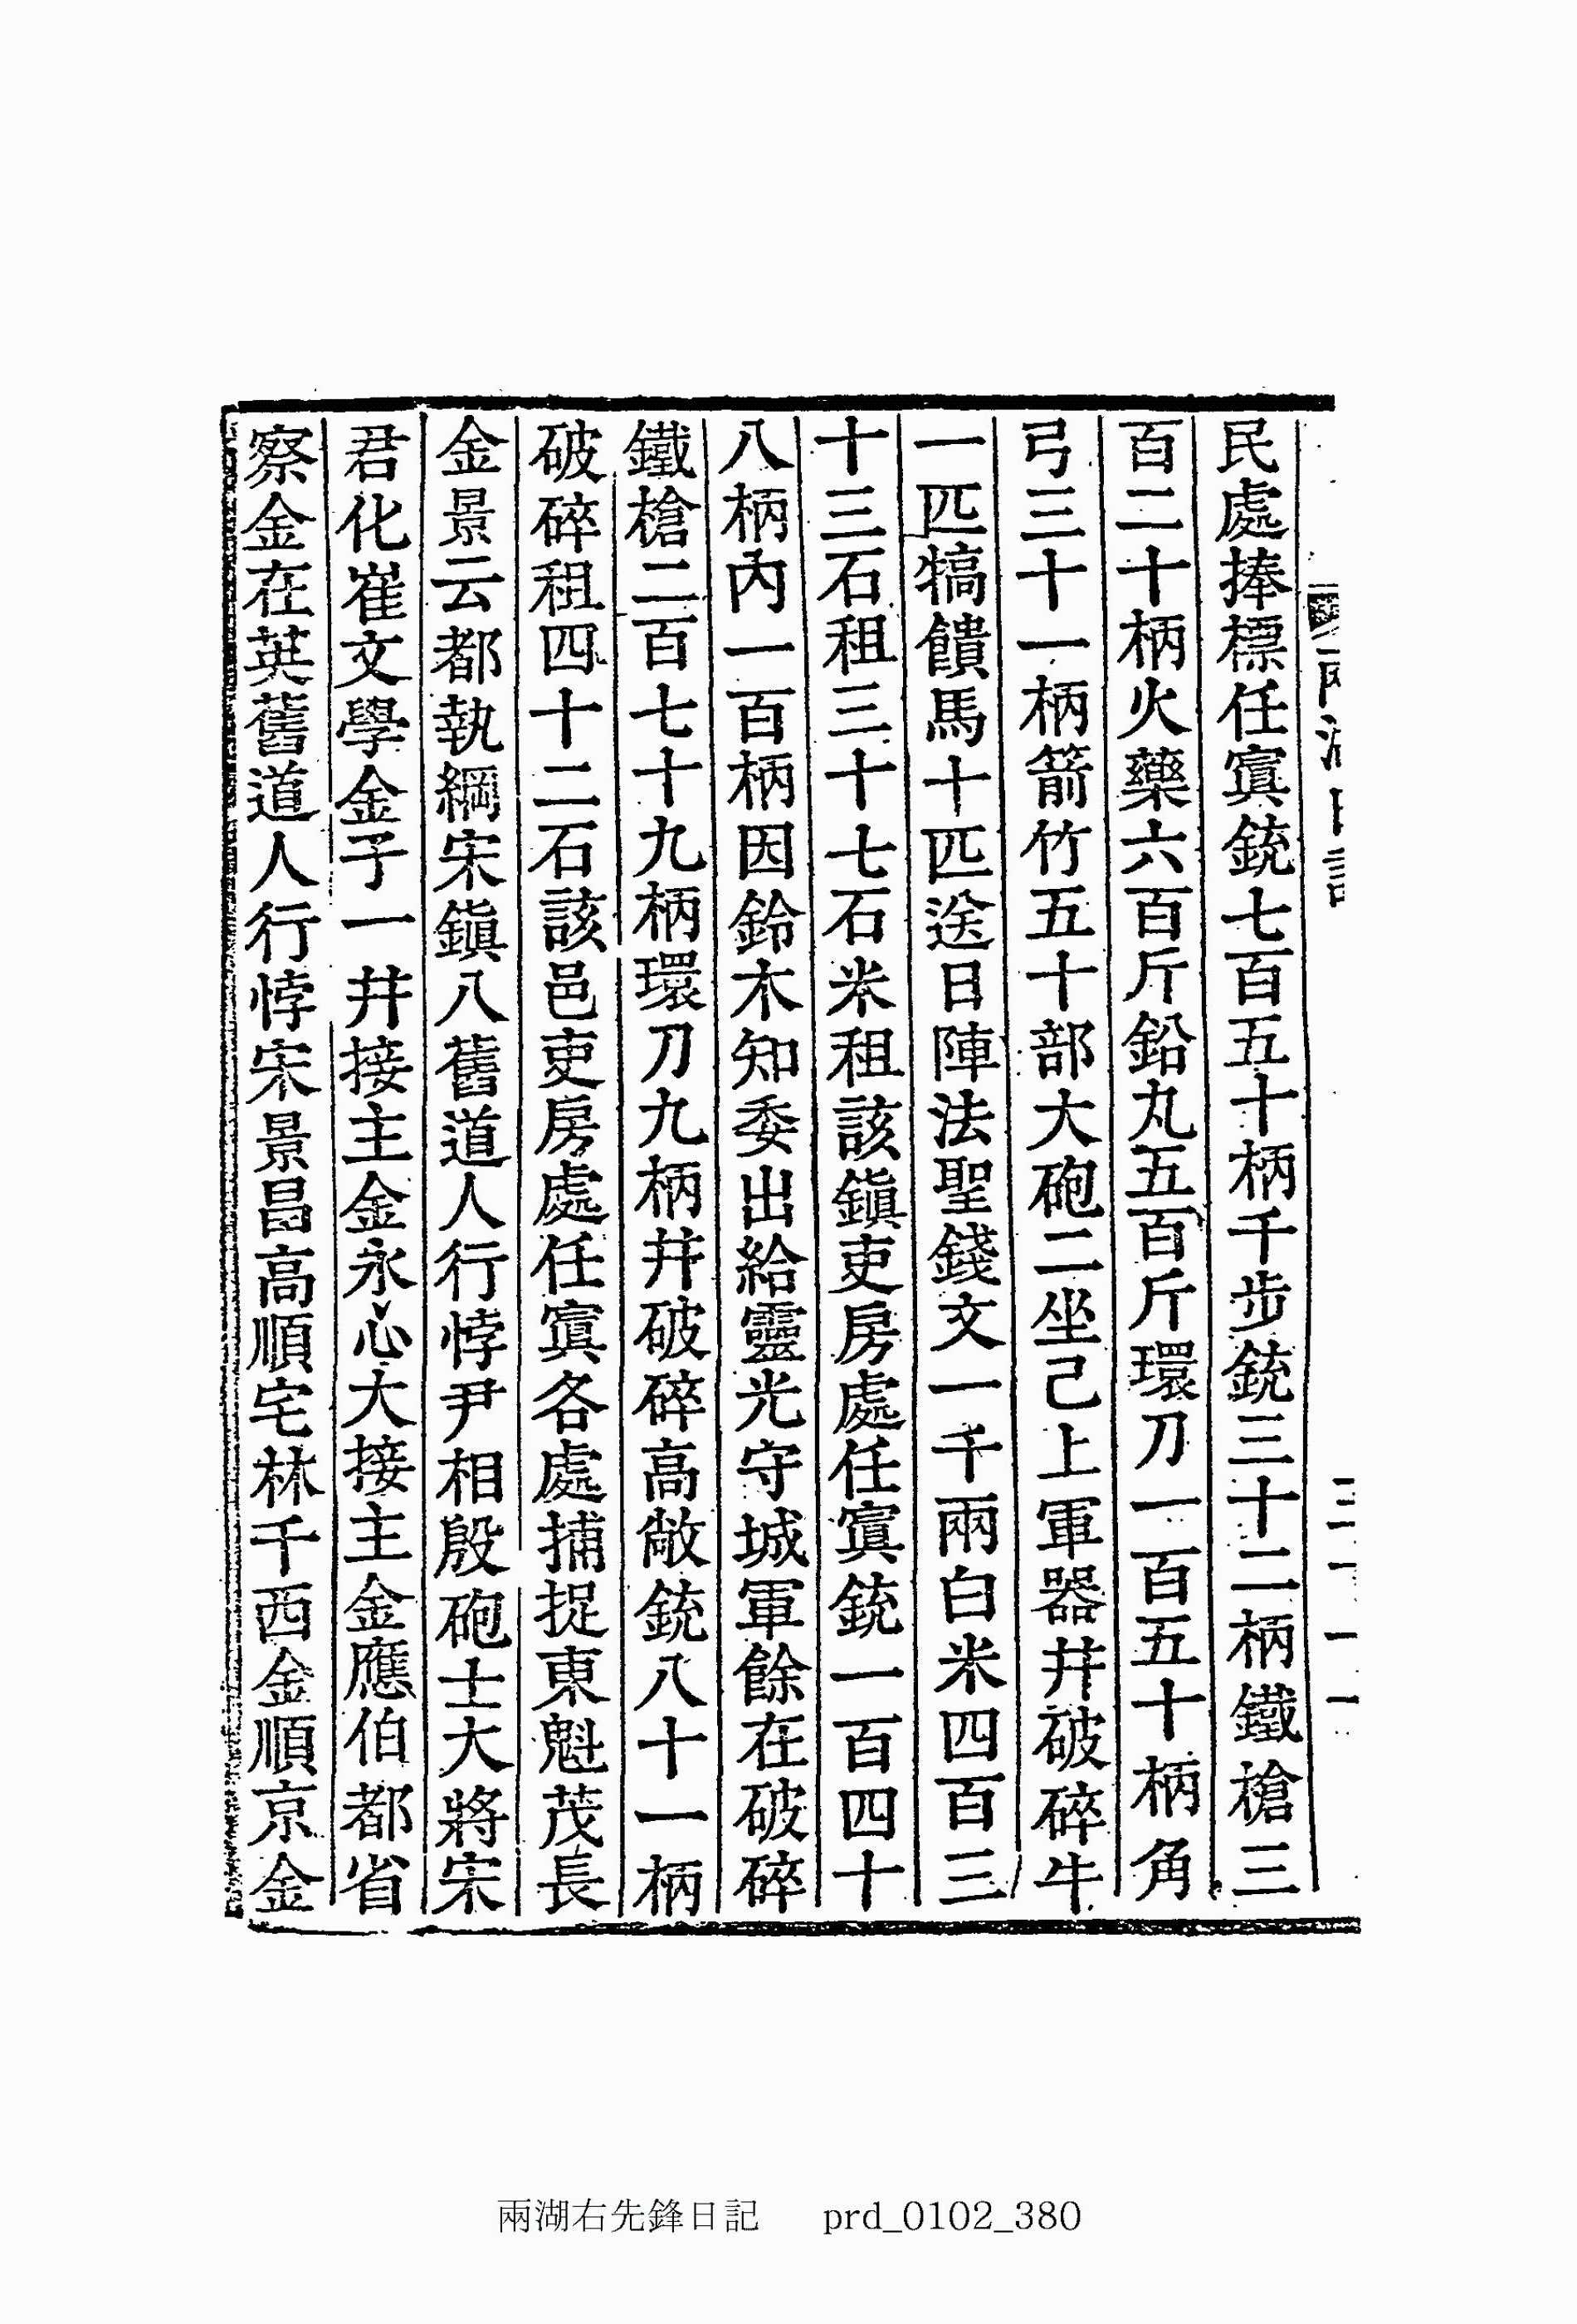 民處捧標任寘銃七百五十柄千步銃三十二柄鐵槍三
百二十柄火藥六百斤鉛丸五百斤環刀一百五十柄角
弓三十一柄箭竹五十部大砲二坐己上軍器幷破碎牛
一匹犒饋馬十匹送日陣法聖錢文一千兩白米四百三
十三石租三十七石米租該鎭吏房處任寘銃一百四十
八柄內一百柄因鈴木知委出給靈光守城軍餘在破碎
鐵槍二百七十九柄環刀九柄幷破碎高敞銃八十一柄
破碎租四十二石該邑吏房處任寘各處捕捉東魁茂長
金景云都執綱宋鎭八舊道人行悖尹相殷砲士大將宋
君化崔文學金子一幷接主金永心大接主金應伯都省
察金在英舊道人行悖宋景昌高順宅林千西金順京金
兩湖右先鋒日記 prd_0102_380